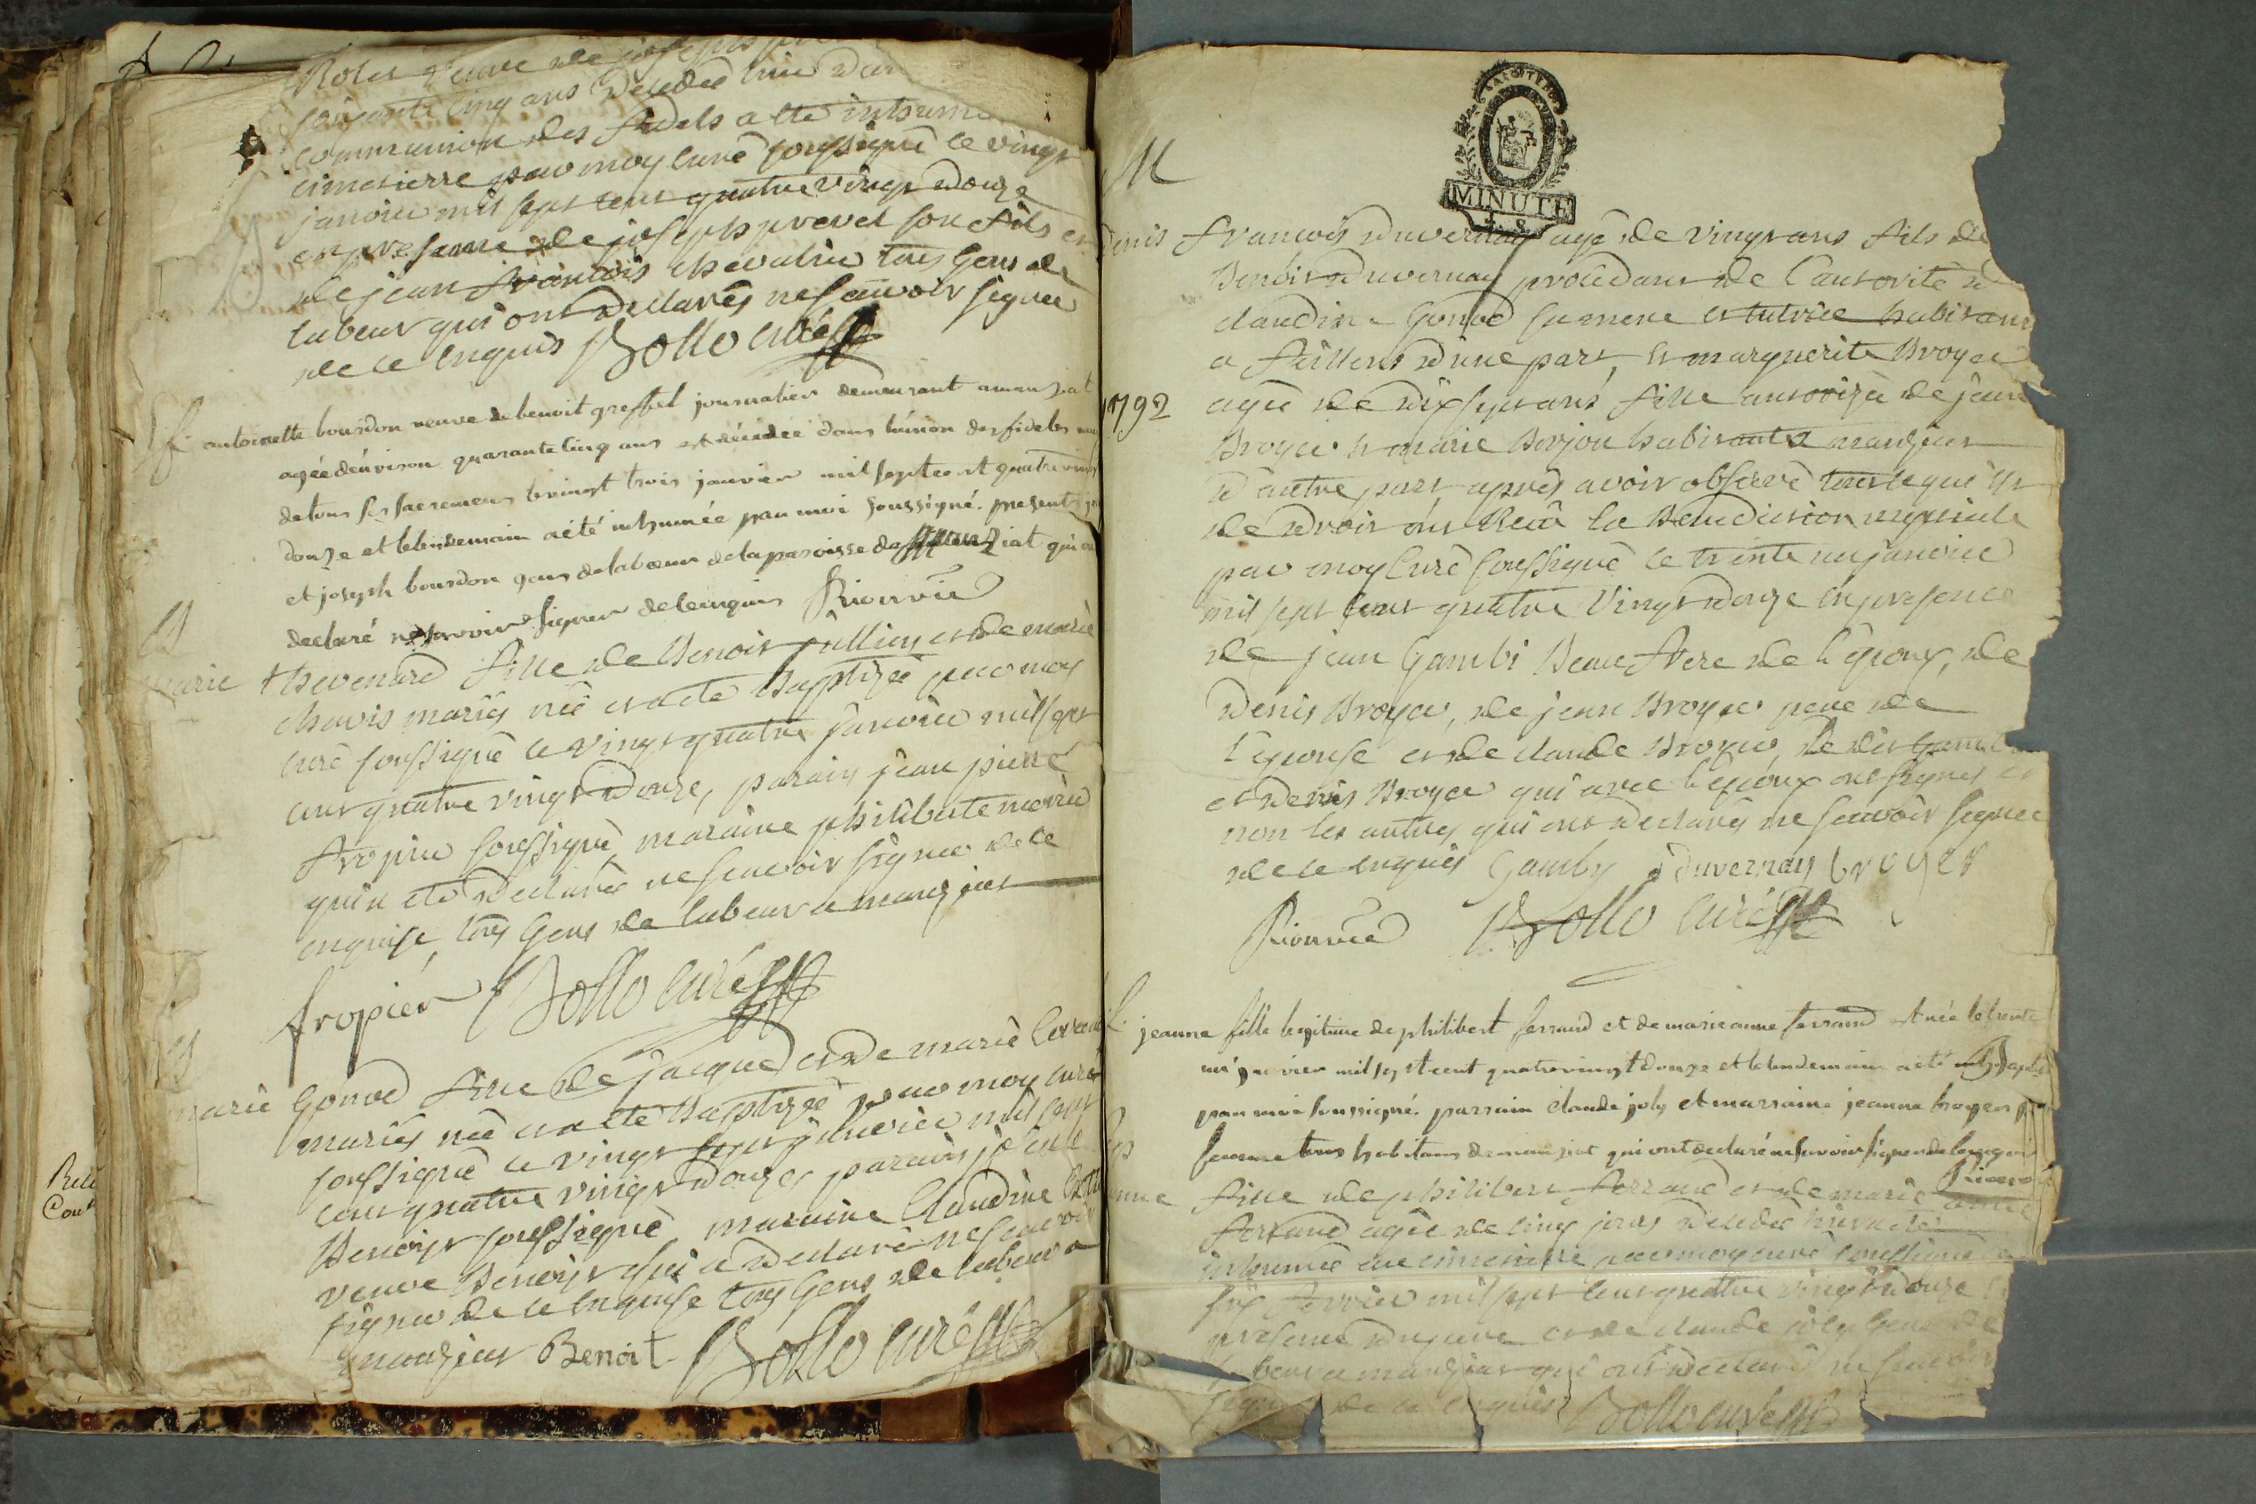 soixante cinq ans decedée hier dans
communion des fidels a eté inhumé
cimetierre par moy curé soussigné le vingt
janvier mil sept cent quatre vingt douze
en presence de joseph prevel son fils et
de jean francois chevalier tous gens de
labeur qui ont declarés ne sçavoir signer
de ce enquis Bollo curé
antoinette bourdon veuve de benoit greffet journalier demeurant a manziat
agée d'environ quarante cinq ans est décédée dans l'union des fideles
de tous ses sacremens le vingt trois janvier mil sept cent quatre vingt
douze et le lendemain a été inhumée par moi soussigné. presents
et joseph bourdon gens de labeur de la paroisse de manziat qui ont
declaré ne savoir signer de ce enquis Rionvier
marie thevenard fille de Benoit jullien et de marie
chavis mariés née et a eté baptizée par moy
curé soussigné le vingt quatre janvier mil sept
cent quatre vingt douze, parain jean pierre
fropier soussigné, maraine philiberte
qui a eté declarée ne sçavoir signer de ce
enquise, tous gens de labeur a manziat
fropier Bollo curé
marie Gonod fille de jacque et de marie
mariés née et a eté baptizée par moy curé
soussigné le vingt sept janvier mil sept
cent quatre vingt douze, parain
Benoist soussigné maraine Claudine
veuve Benoist qui a declaré ne sçavoir
signer de ce enquise tous gens de labeur a
manziat Benoit Bollo curé
M
MINUTE
Denis francois Duvernay agé de vingt ans fils de
Benoit Duvernay procédant de l'autorité de
claudine Gonod sa mere et tutrice habitant
a feillens d'une part, et marguerite Broyer
1792 agée de dix sept ans fille autorizée de jean
Broyer et marie Borjon habitants a manziat
d'autre part après avoir observé tout ce qui est
de droit ont Reçu la Benediction nuptiale
par moy curé soussigné le trente un janvier
mil sept cent quatre vingt douze en presence
de jean Gambi Beau frere de l'epoux, de
Denis Broyer, de jean Broyer pere de
l'epouse et de claude Broyer, le dit Gambi
et denis Broyer qui avec l'epoux ont signés et
non les autres qui ont declarés ne sçavoir signer
de ce enquis Gamby duvernay broyer
Rionvier Bollo curé
jeanne fille legitime de philibert ferrand et de marie anne ferrand est née le trente
un janvier mil sept cent quatre vingt douze et le lendemain a été baptisée
par moi soussigné. parrain claude joly et marraine jeanne broyer
femme tous habitans de manziat qui ont declaré ne savoir signer de ce enquis
Rionvier
fille de philibert ferrand et de marie anne
ferrand agée de cinq jours decedée hier a été
inhumée au cimetierre par moy curé soussigné le
six fevrier mil sept cent quatre vingt douze
presence du pere et de claude joly gens de
labeur a manziat qui ont declaré ne sçavoir
signer de ce enquis Bollo curé